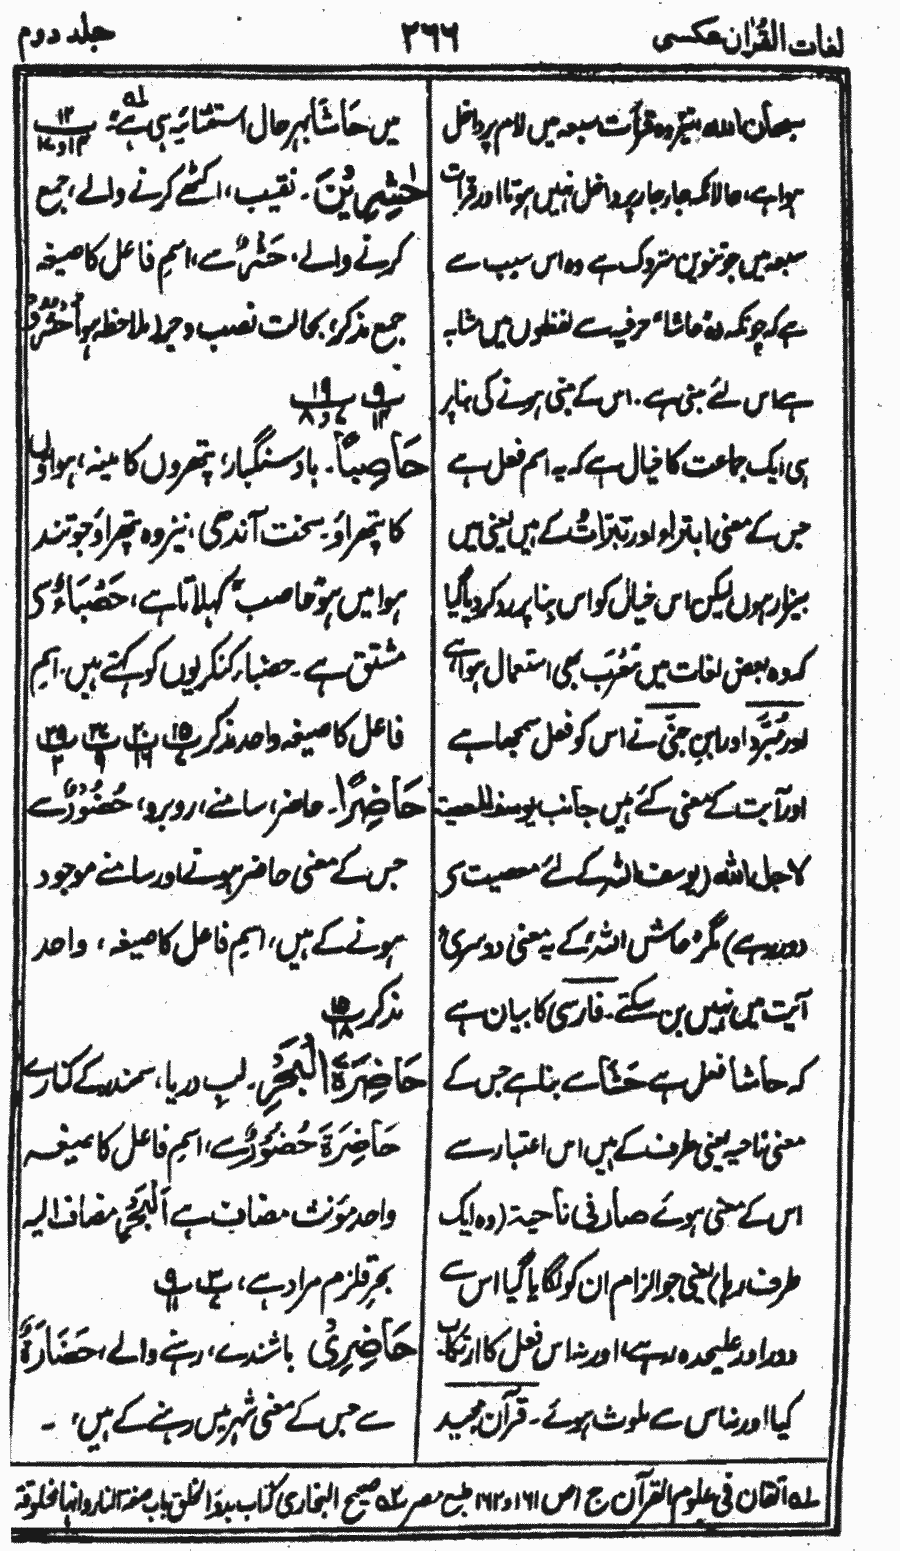 لغات القرآن عکسی
۲۶۶
جلد دوم
سبحان اللہ نیز وہ قرأت سبعہ میں لام پر داخل
ہوا ہے، حالانکہ جار جار پر داخل نہیں ہوتا اور قرأت
سبعہ میں جو تنوین متروک ہے وہ اس سبب سے
ہے کہ چونکہ وہ حاشاء حرفیہ سے لفظوں میں مشابہ
ہے اس لئے مبنی ہے. اس کے مبنی ہونے کی بنا پر
ہی ایک جماعت کا خیال ہے کہ یہ اسم فعل ہے
جس کے معنی ابترأو اور تبرّأتُ کے ہیں یعنی میں
بیزار ہوں لیکن اس خیال کو اس بنا پر رد کر دیا گیا
کہ وہ بعض لغات میں مُعرَب بھی استعمال ہوا ہے
اور مُبَرّد اور ابنِ جنّی نے اس کو فعل سمجھا ہے
اور آیت کے معنی کئے ہیں جانب یوسف المعصیۃ
لاجل اللہ (یوسف اللہ کے لئے معصیت سے
دور رہے) مگر حاش اللہ کے یہ معنی دوسری
آیت میں نہیں بن سکتے. فارسی کا بیان ہے
کہ حاشا فعل ہے حَشَا سے بنا ہے جس کے
معنی ناحیہ یعنی طرف کے ہیں اس اعتبار سے
اس کے معنی ہوئے صار فی ناحیۃ (وہ ایک
طرف رہا) یعنی جو الزام ان کو لگایا گیا اس سے
دور اور علیحدہ رہے، اور نہ اس فعل کا ارتکاب
کیا اور نہ اس سے ملوث ہوئے۔ قرآن مجید
میں حَاشَا بہر حال استثنائیہ ہی ہے لہ ۱۲ ۱۳و۱۴
حٰشِرِیْنَ۔ نقیب، اکٹھے کرنے والے، جمع
کرنے والے، حَشْرٌ سے، اسمِ فاعل کا صیغہ
جمع مذکر، بحالت نصب و جر (ملاحظہ ہو اُحْشُرُوْا)
پ۹ ۴ پ۱۹ ۷و۸
حَاصِبًا۔ بادِ سنگبار، پتھروں کا مینہ، ہوا اور
کا پتھراؤ۔ سخت آندھی، نیز وہ پتھراؤ جو تند
ہوا میں ہو حاصب کہلاتا ہے، حَصْبَاءُ سے
مشتق ہے۔ حصباء کنکریوں کو کہتے ہیں. اسم
فاعل کا صیغہ واحد مذکر پ۱۵ ۷ پ۲۰ ۱۶ پ۲۷ ۹ پ۲۹ ۲
حَاضِرًا۔ حاضر، سامنے، روبرو، حُضُوْرٌ سے
جس کے معنی حاضر ہونے اور سامنے موجود
ہونے کے ہیں، اسمِ فاعل کا صیغہ، واحد
مذکر پ۱۵ ۱۸
حَاضِرَۃَ الْبَحْرِ۔ لبِ دریا، سمندر کے کنارے
حَاضِرَۃَ حُضُوْرٌ سے، اسمِ فاعل کا صیغہ
واحد مؤنث مضاف ہے اَلْبَحْرِ مضاف الیہ
بحرِ قلزم مراد ہے، پ۳ ۷ پ۹ ۱۱
حَاضِرِیْ باشندے، رہنے والے، حَضَارَۃٌ
سے جس کے معنی شہر میں رہنے کے ہیں، ۔
لہ اتقان فی علوم القرآن ج ا ص ۱۶۱ و ۱۶۲ طبع مصر ۲ہ صحیح البخاری کتاب بدو الخلق باب صفۃ النار وانہا مخلوقۃ